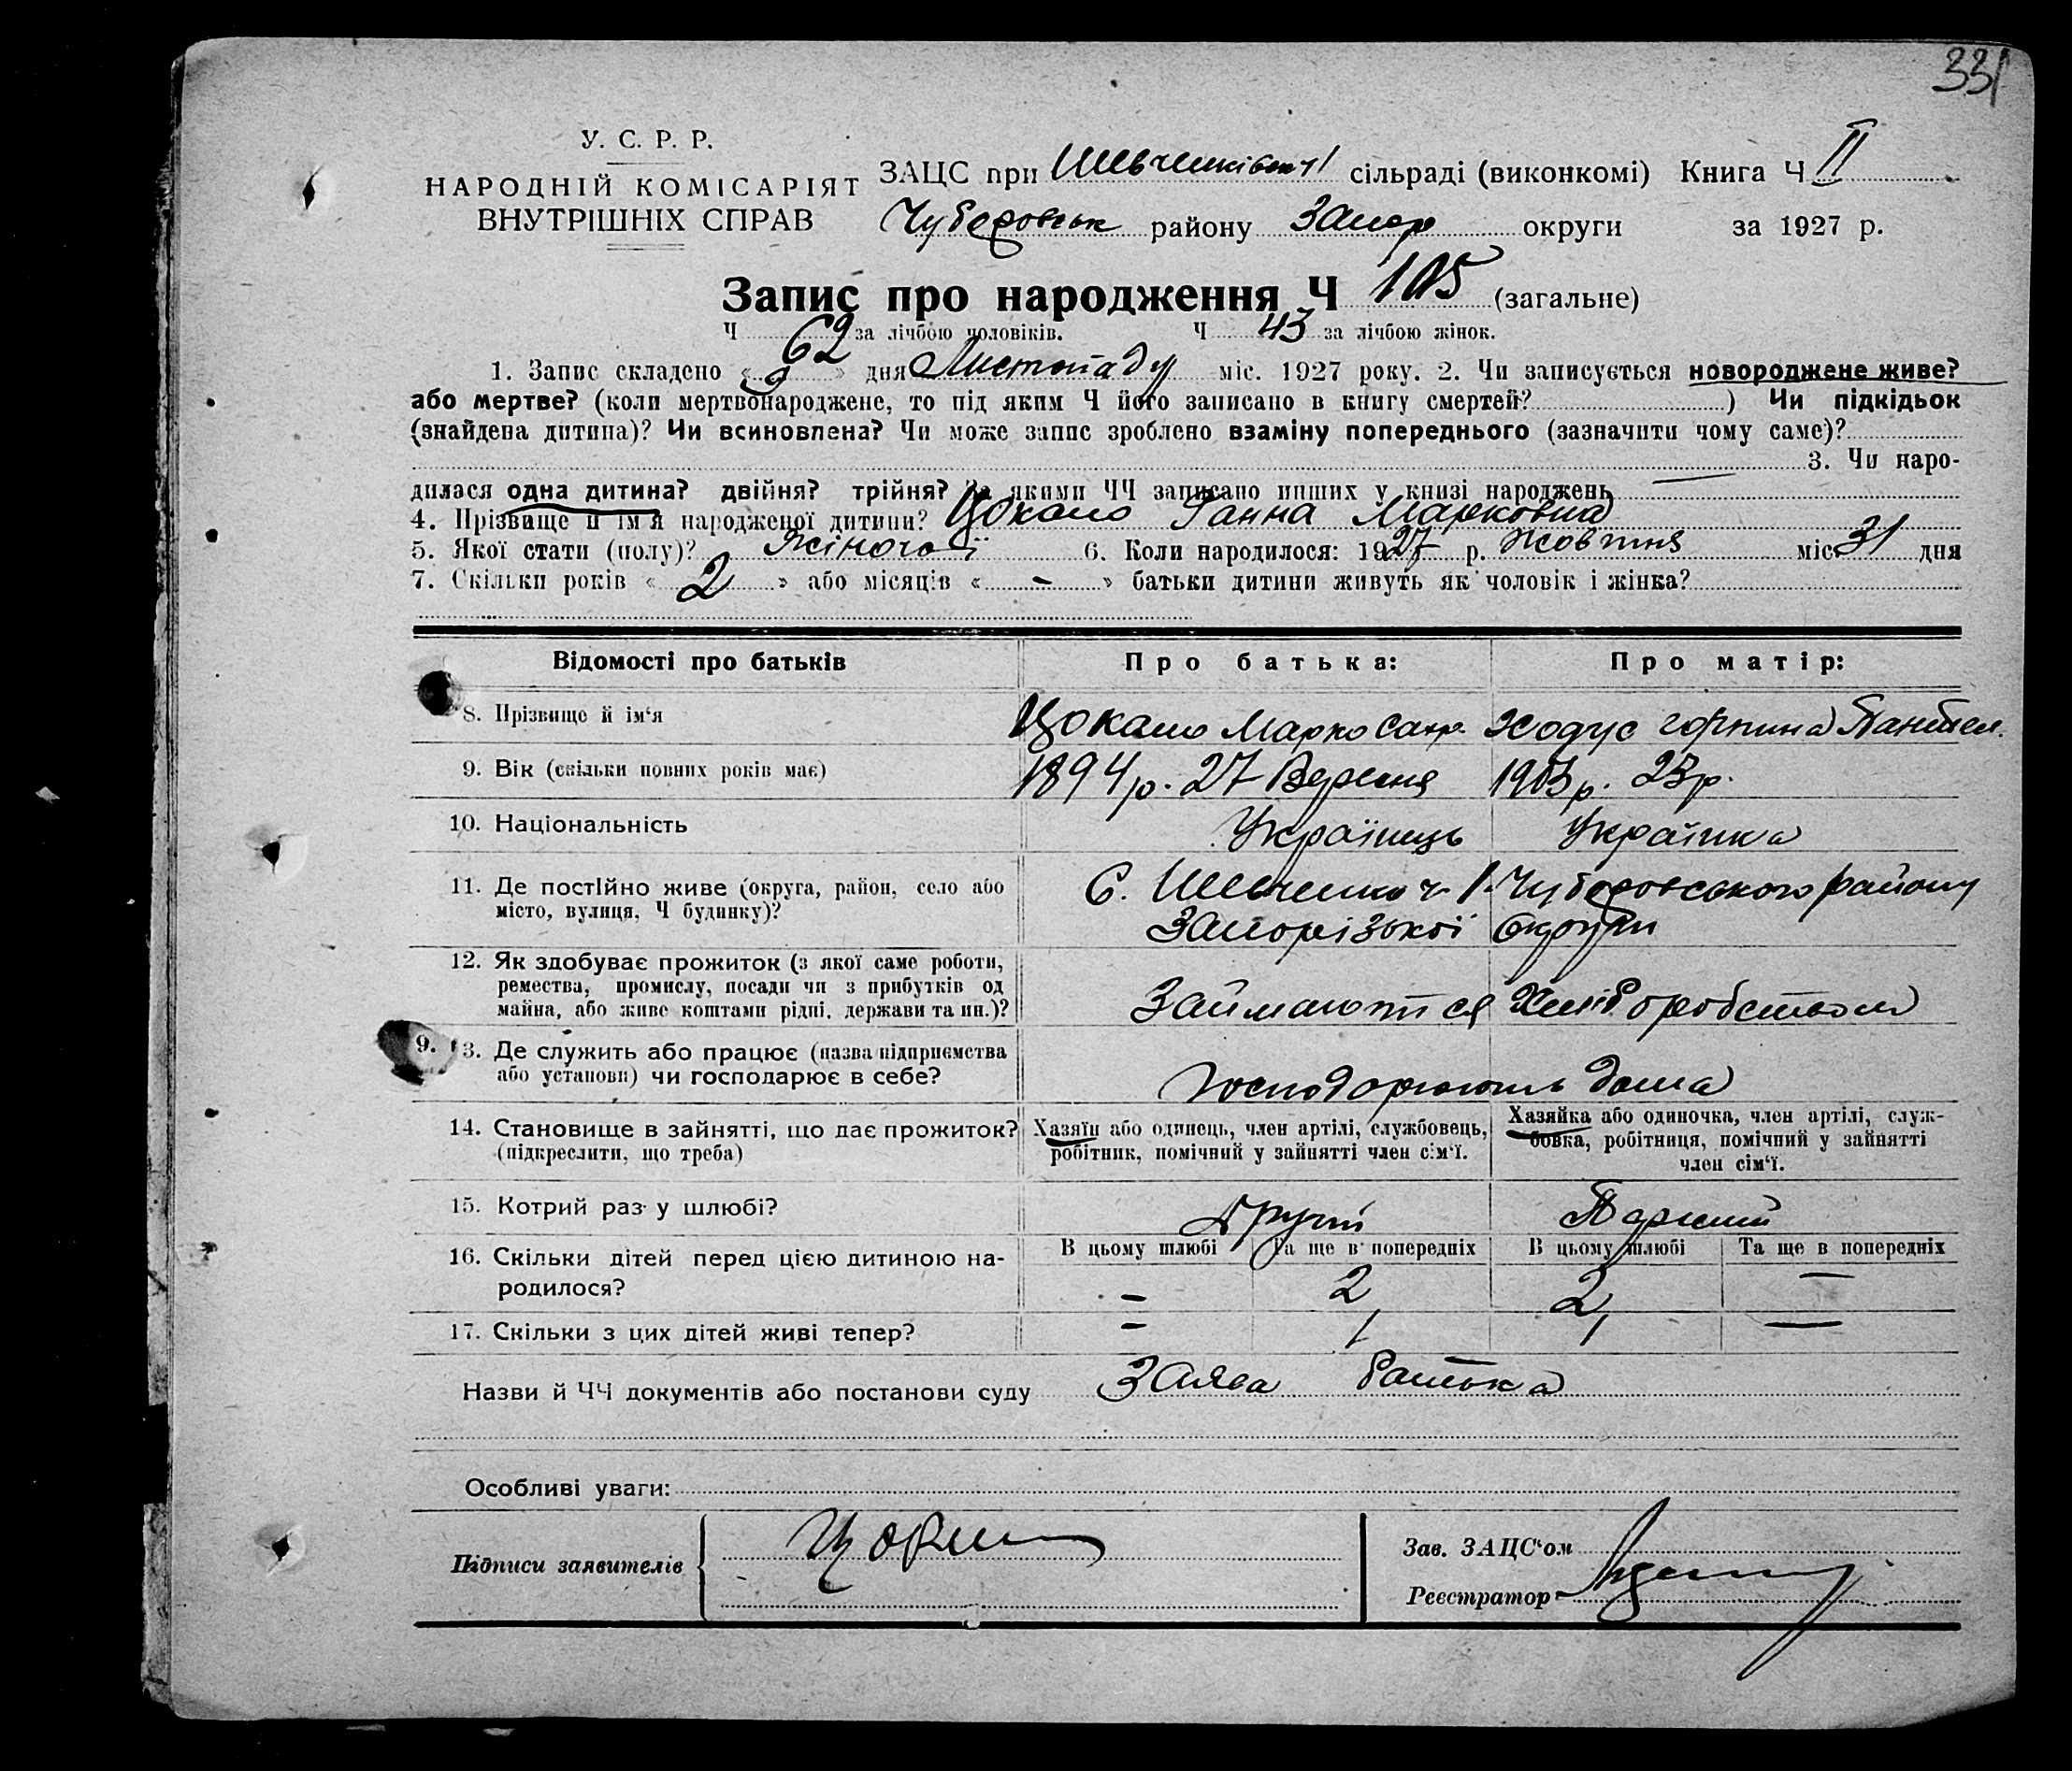 331
У. С. Р. Р.
НАРОДНІЙ КОМІСАРІЯТ
ВНУТРІШНІХ СПРАВ
ЗАЦС при Шевченківськ ч 1 сільраді (виконкомі) Книга Ч II
Чубаровськ району Запор округи за 1927 р.
Запис про народження Ч 105 (загальне)
Ч 62 за лічбою чоловіків. Ч 43 за лічбою жінок.
1. Запис складено « 9 » дня Листопаду міс. 1927 року. 2. Чи записується новороджене живе?
або мертве? (коли мертвонароджене, то під яким Ч його записано в книгу смертей? ) Чи підкідьок
(знайдена дитина)? Чи всиновлена? Чи може запис зроблено взаміну попереднього (зазначити чому саме)?
3. Чи наро-
дилася одна дитина? двійня? трійня? За якими ЧЧ записано инших у книзі народжень
4. Прізвище й ім'я народженої дитини? Цокало Ганна Марковна
5. Якої стати (полу)? Жіночої 6. Коли народилося: 1927 р. Жовтня міс. 31 дня
7. Скільки років « 2 » або місяців « - » батьки дитини живуть як чоловік і жінка?
Відомості про батьків Про батька: Про матір:
8. Прізвище й ім'я Цокало Марко Ходус Горпина Пантел.
9. Вік (скільки повних років має) 1894 р. 27 Вересня 1903 р. 23 р.
10. Національність Українець Українка
11. Де постійно живе (округа, район, село або С. Шевченко ч 1. Чубаровського району
місто, вулиця, Ч будинку)? Запорізької Округи
12. Як здобуває прожиток (з якої саме роботи,
ремества, промислу, посади чи з прибутків од Займаються Хліборобством
майна, або живе коштами рідні, держави та ин.)?
9. 13. Де служить або працює (назва підприємства
або установи) чи господарює в себе? господарюють дома
14. Становище в зайнятті, що дає прожиток? Хазяїн або одинець, член артілі, службовець, Хазяйка або одиночка, член артілі, служ-
(підкреслити, що треба) робітник, помічний у зайнятті член сім'ї. бовка, робітниця, помічний у зайнятті
член сім'ї.
15. Котрий раз у шлюбі? Другий Первий
16. Скільки дітей перед цією дитиною на- В цьому шлюбі Та ще в попередніх В цьому шлюбі Та ще в попередніх
родилося? - 2 2 -
17. Скільки з цих дітей живі тепер? - 1 1 -
Назви й ЧЧ документів або постанови суду Заява батька
Особливі уваги:
Підписи заявителів Зав. ЗАЦС'ом
Реєстратор